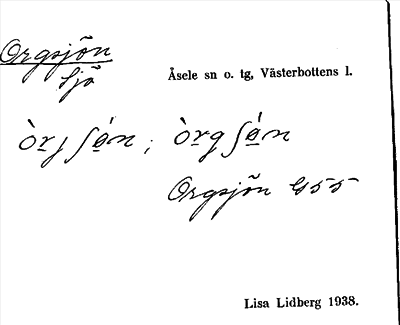 Orgsjön
Åsele sn o. tg, Västerbottens l.
Sjö
òrj ʃø̀n ; òrg ʃø̀n
Orgsjön G55
Lisa Lidberg 1938.